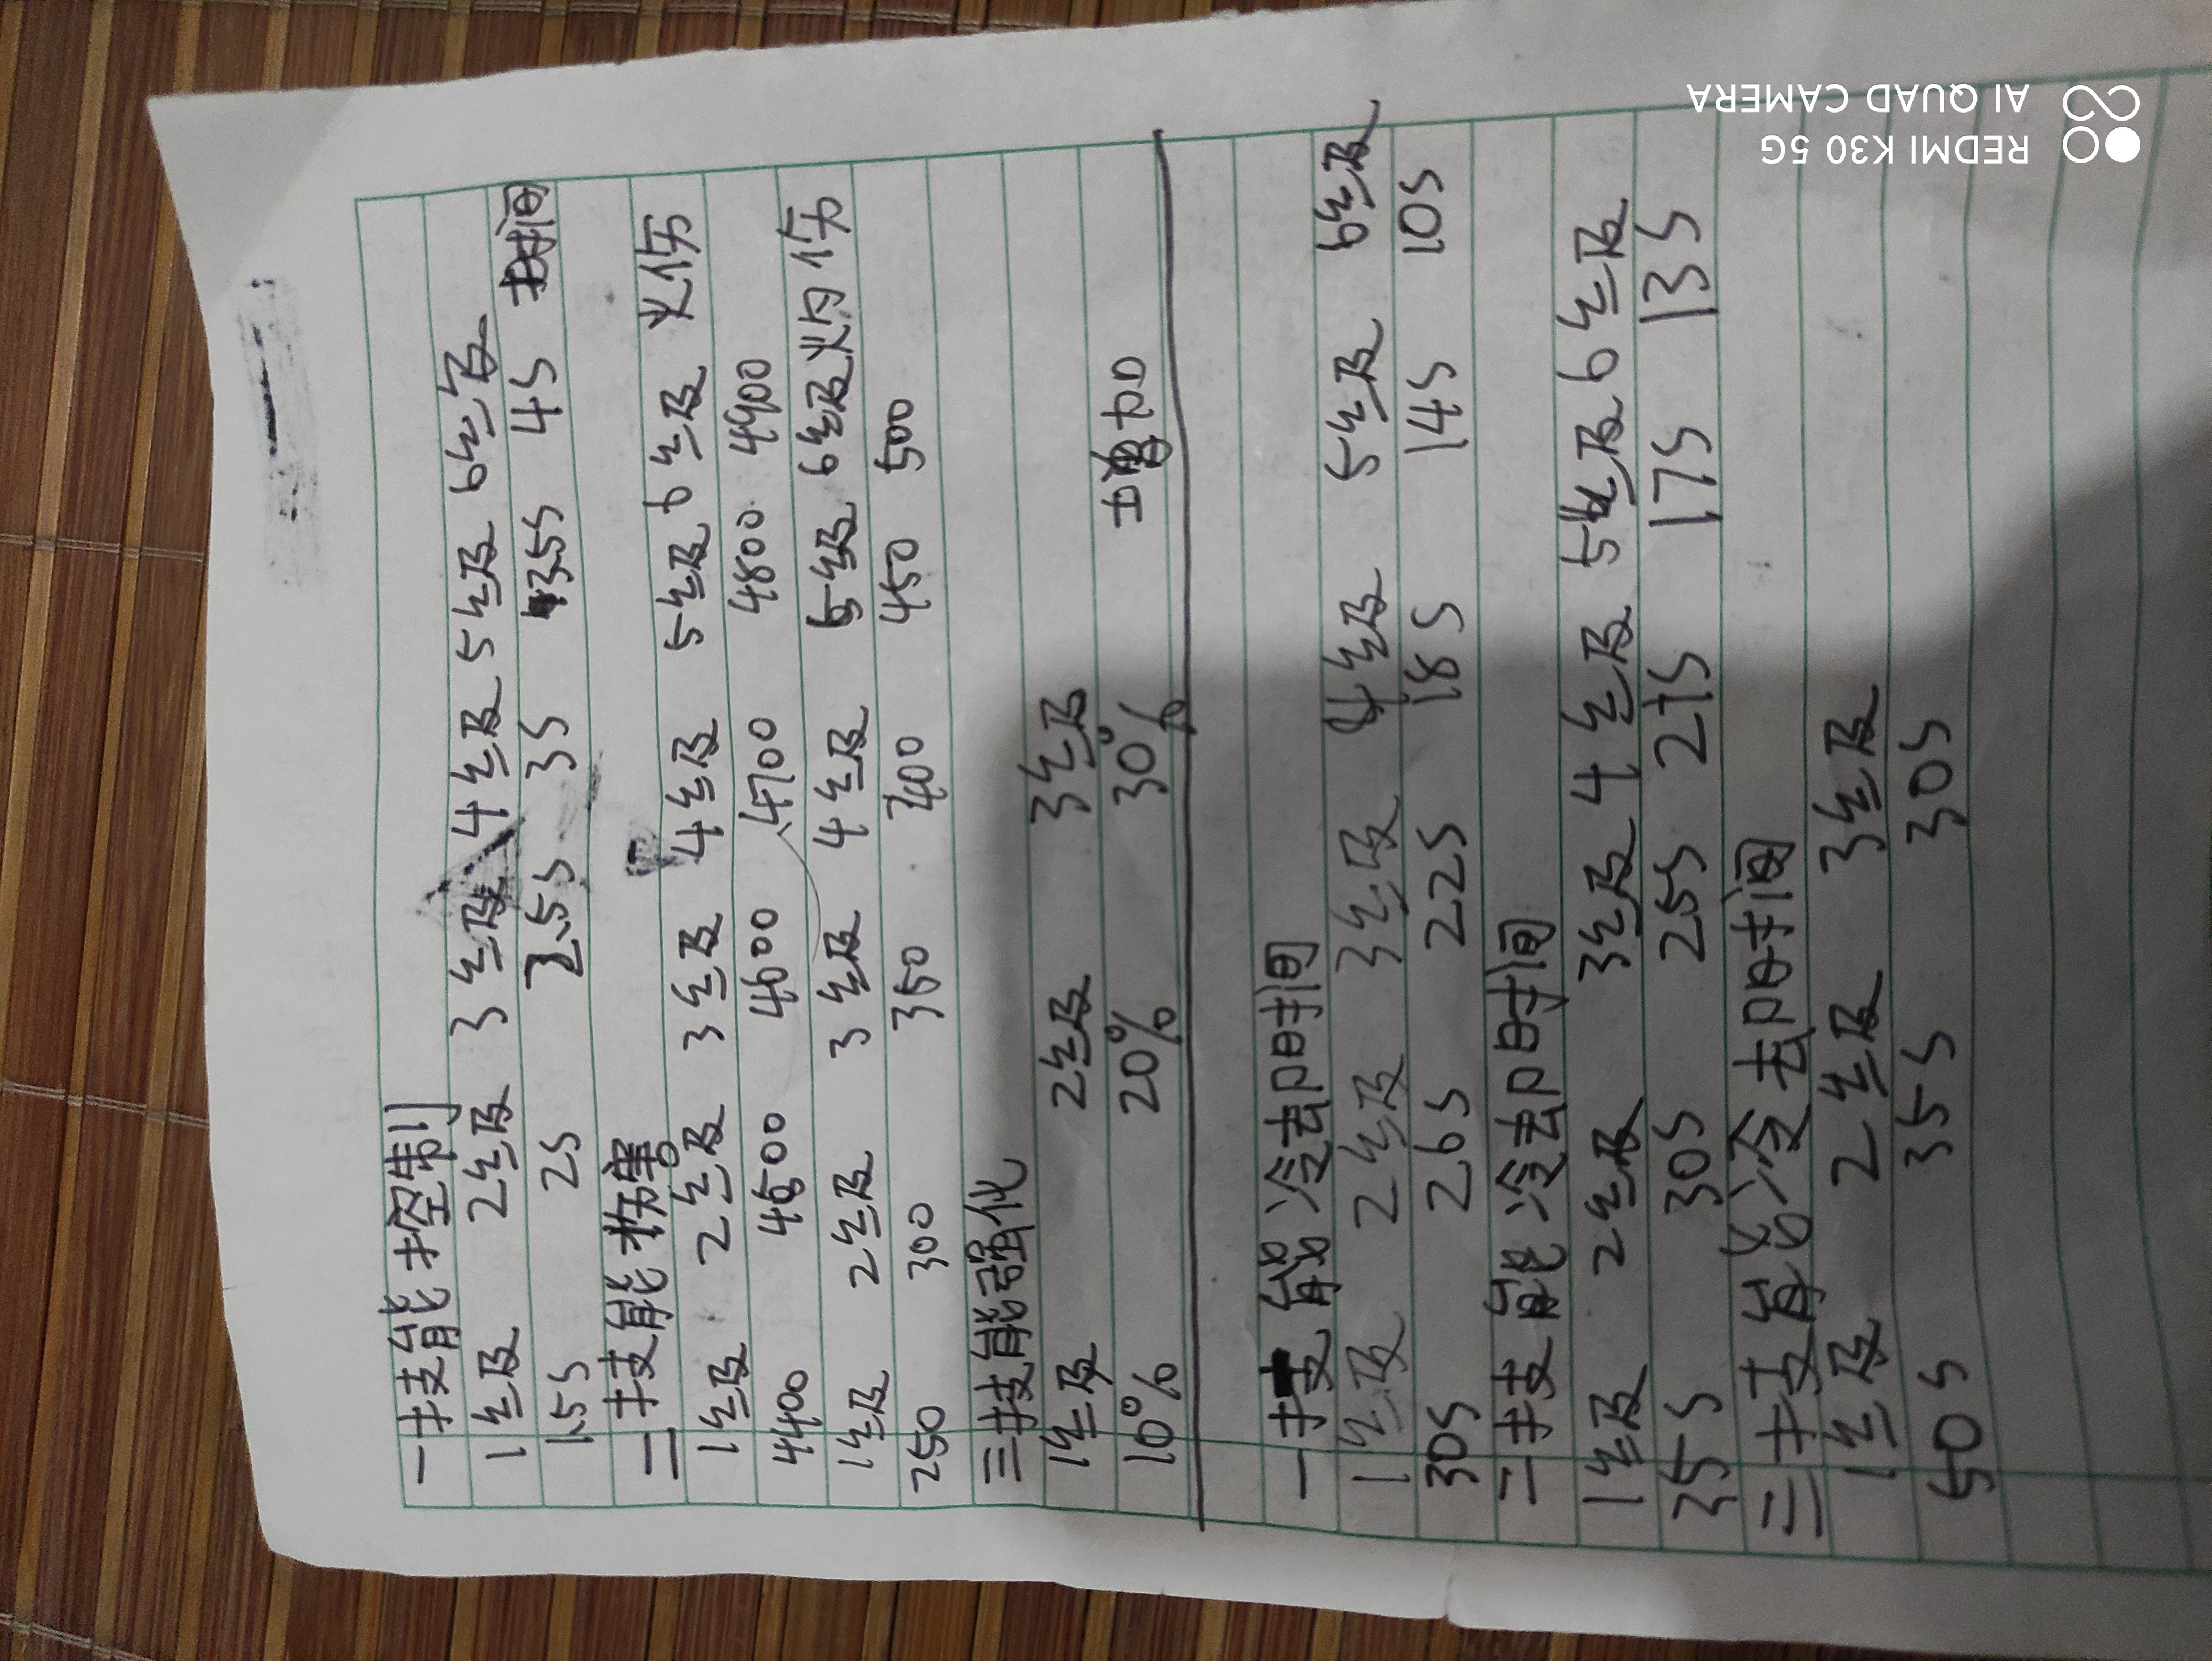 一技能控制
1级 2级 3级 4级 5级 6级
1.5s 2s 2.5s 3s 3.5s 4s 时间
二技能伤害
1级 2级 3级 4级 5级 6级 火伤
4400 4500 4600 4700 4800 4900
1级 2级 3级 4级 5级 6级 灼伤
250 300 350 400 450 500
三技能强化
1级 2级 3级
10% 20% 30% 增加
一技能冷却时间
1级 2级 3级 4级 5级 6级
30s 26s 22s 18s 14s 10s
二技能冷却时间
1级 2级 3级 4级 5级 6级
35s 30s 25s 21s 17s 13s
三技能冷却时间
1级 2级 3级
50s 35s 30s
REDMI K30 5G
AI QUAD CAMERA